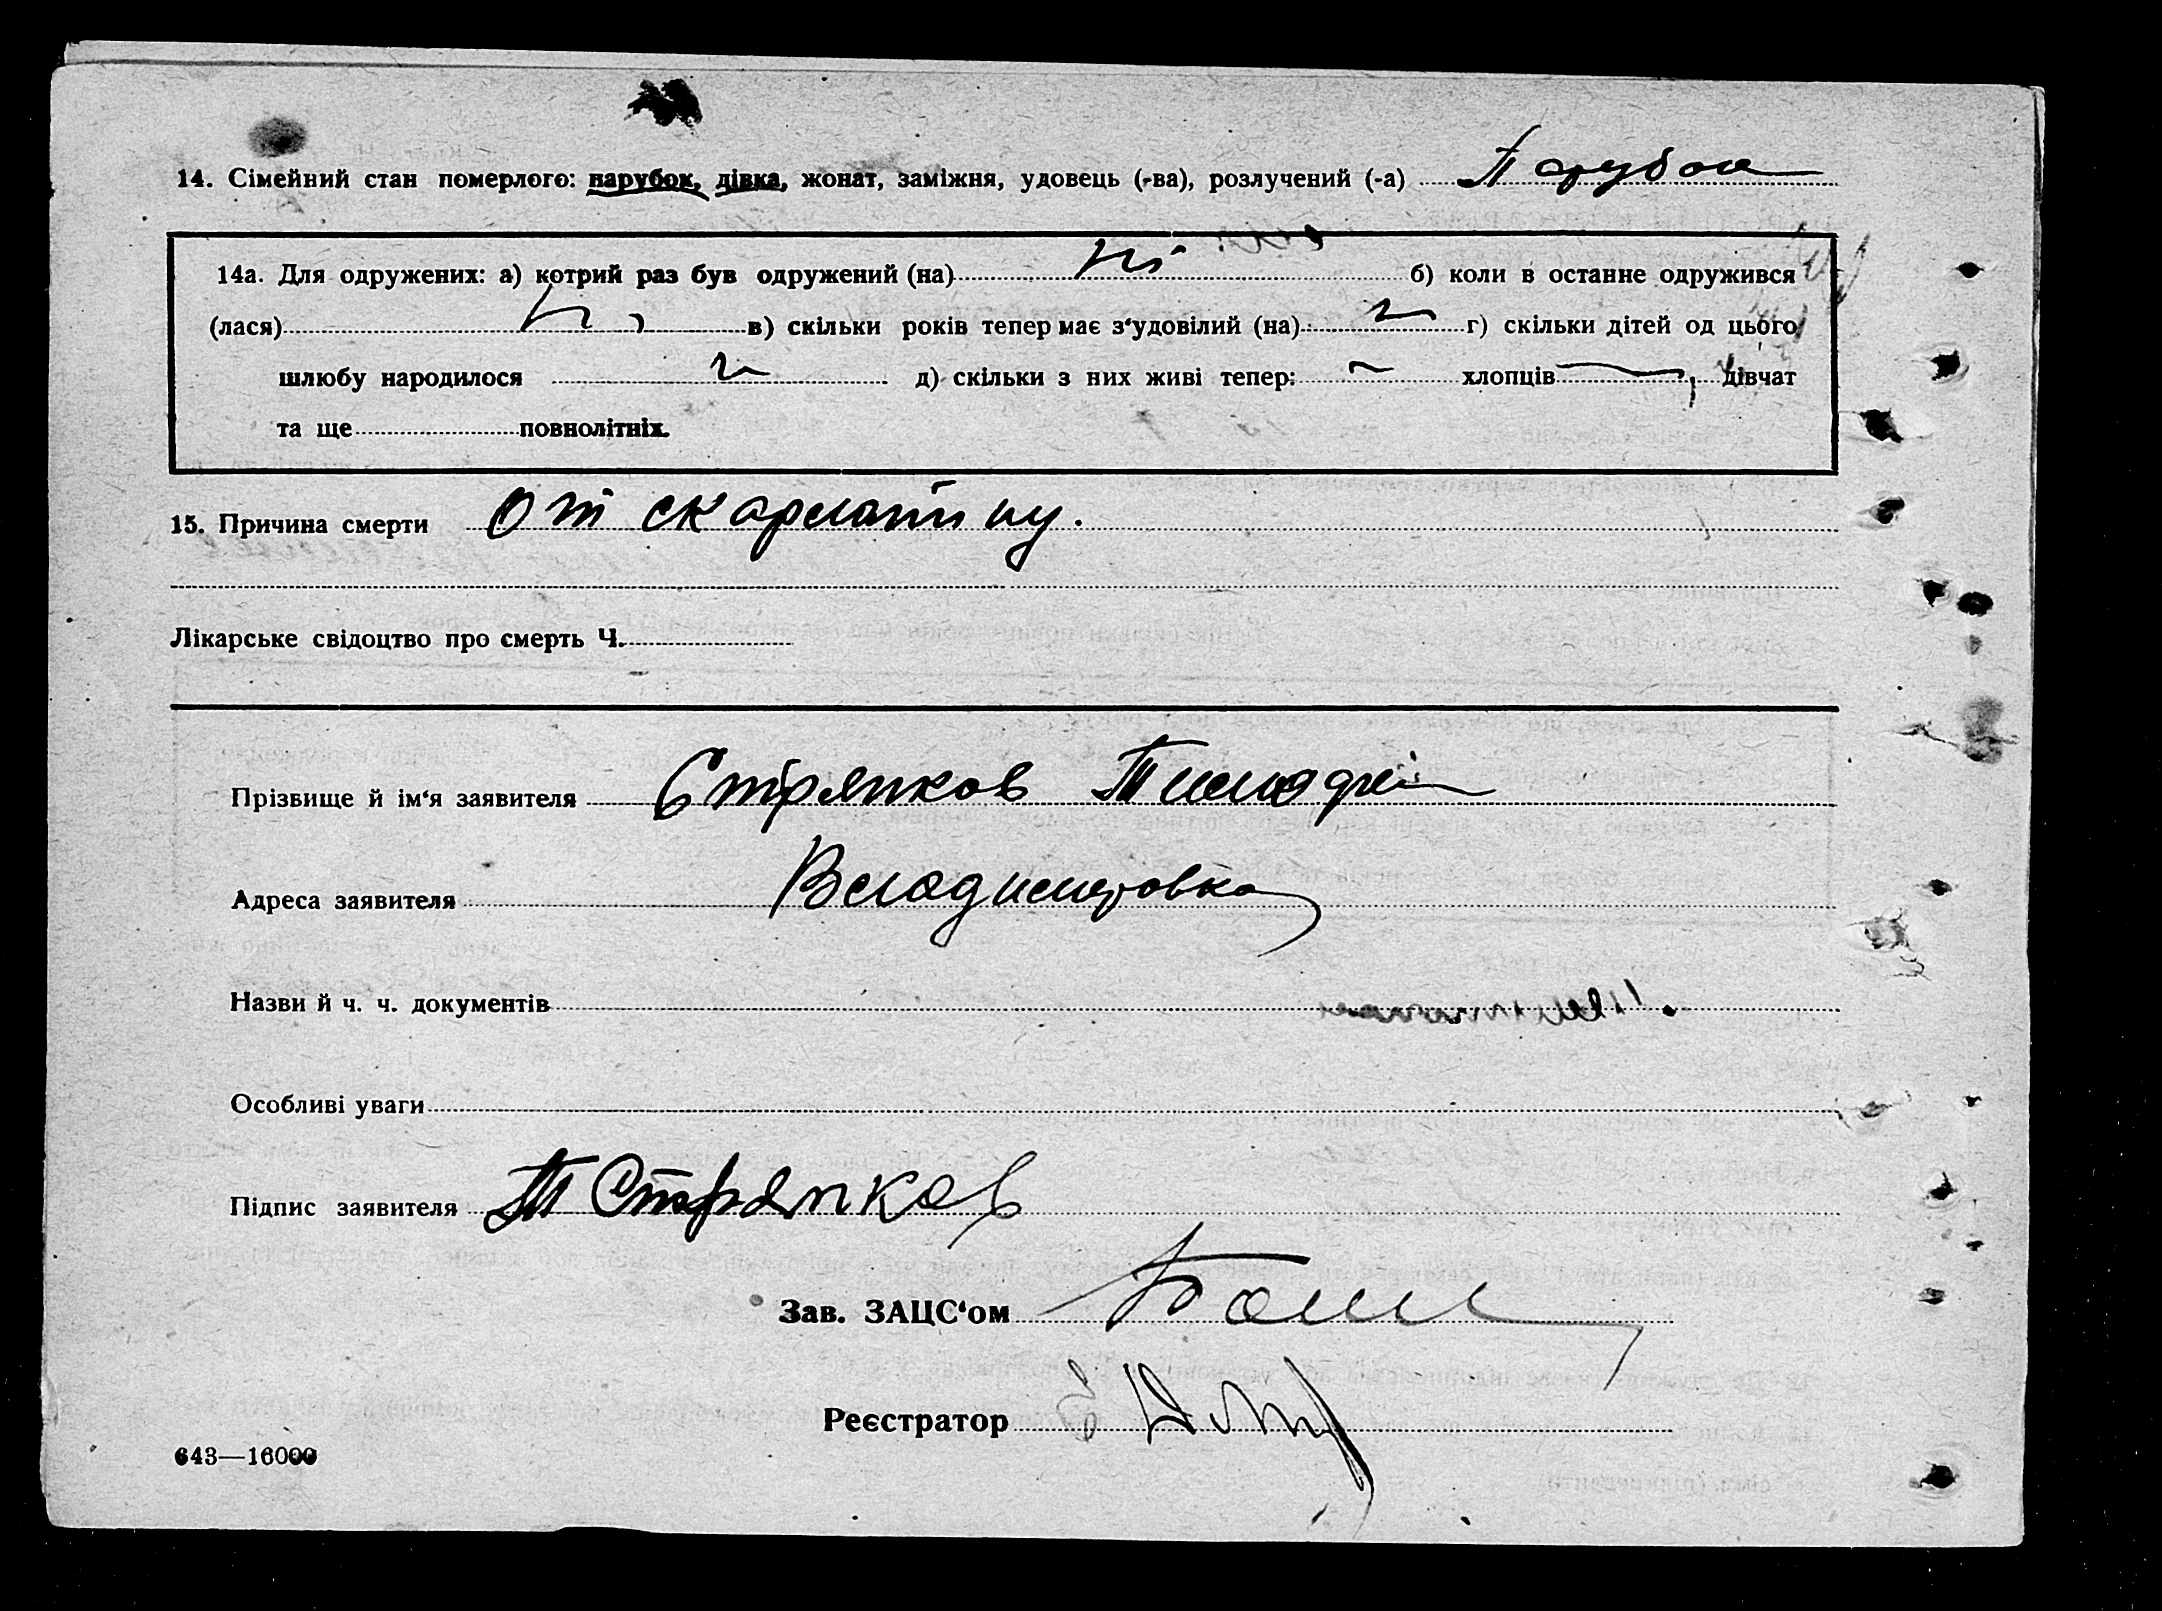 14. Сімейний стан померлого: парубок, дівка, жонат, заміжня, удовець (-ва), розлучений (-а) Парубок
14а. Для одружених: а) котрий раз був одружений (на) ні б) коли в останнє одружився
(лася) в) скільки років тепер має з‘удовілий (на) г) скільки дітей од цього
шлюбу народилося д) скільки з них живі тепер: хлопців дівчат
та ще повнолітніх.
15. Причина смерти От скарлатину.
Лікарське свідоцтво про смерть Ч.
Прізвище й ім‘я заявителя Стряпков Тимофей
Адреса заявителя Владимировка
Назви й ч. ч. документів
Особливі уваги
Підпис заявителя Т Стряпков
Зав. ЗАЦС‘ом
Реєстратор
643—16000